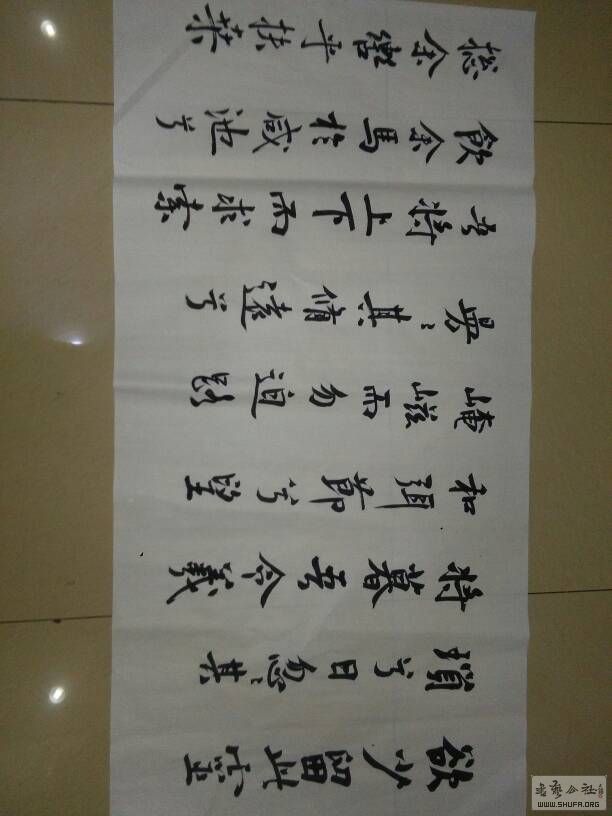 欲少留此靈
瑣兮日忽〻其
將暮吾令羲
和弭節兮望
崦嵫而勿迫路
曼〻其脩遠兮
吾將上下而求索
飲余馬於咸池兮
總余轡乎扶桑
書藝公社
WWW.SHUFA.ORG